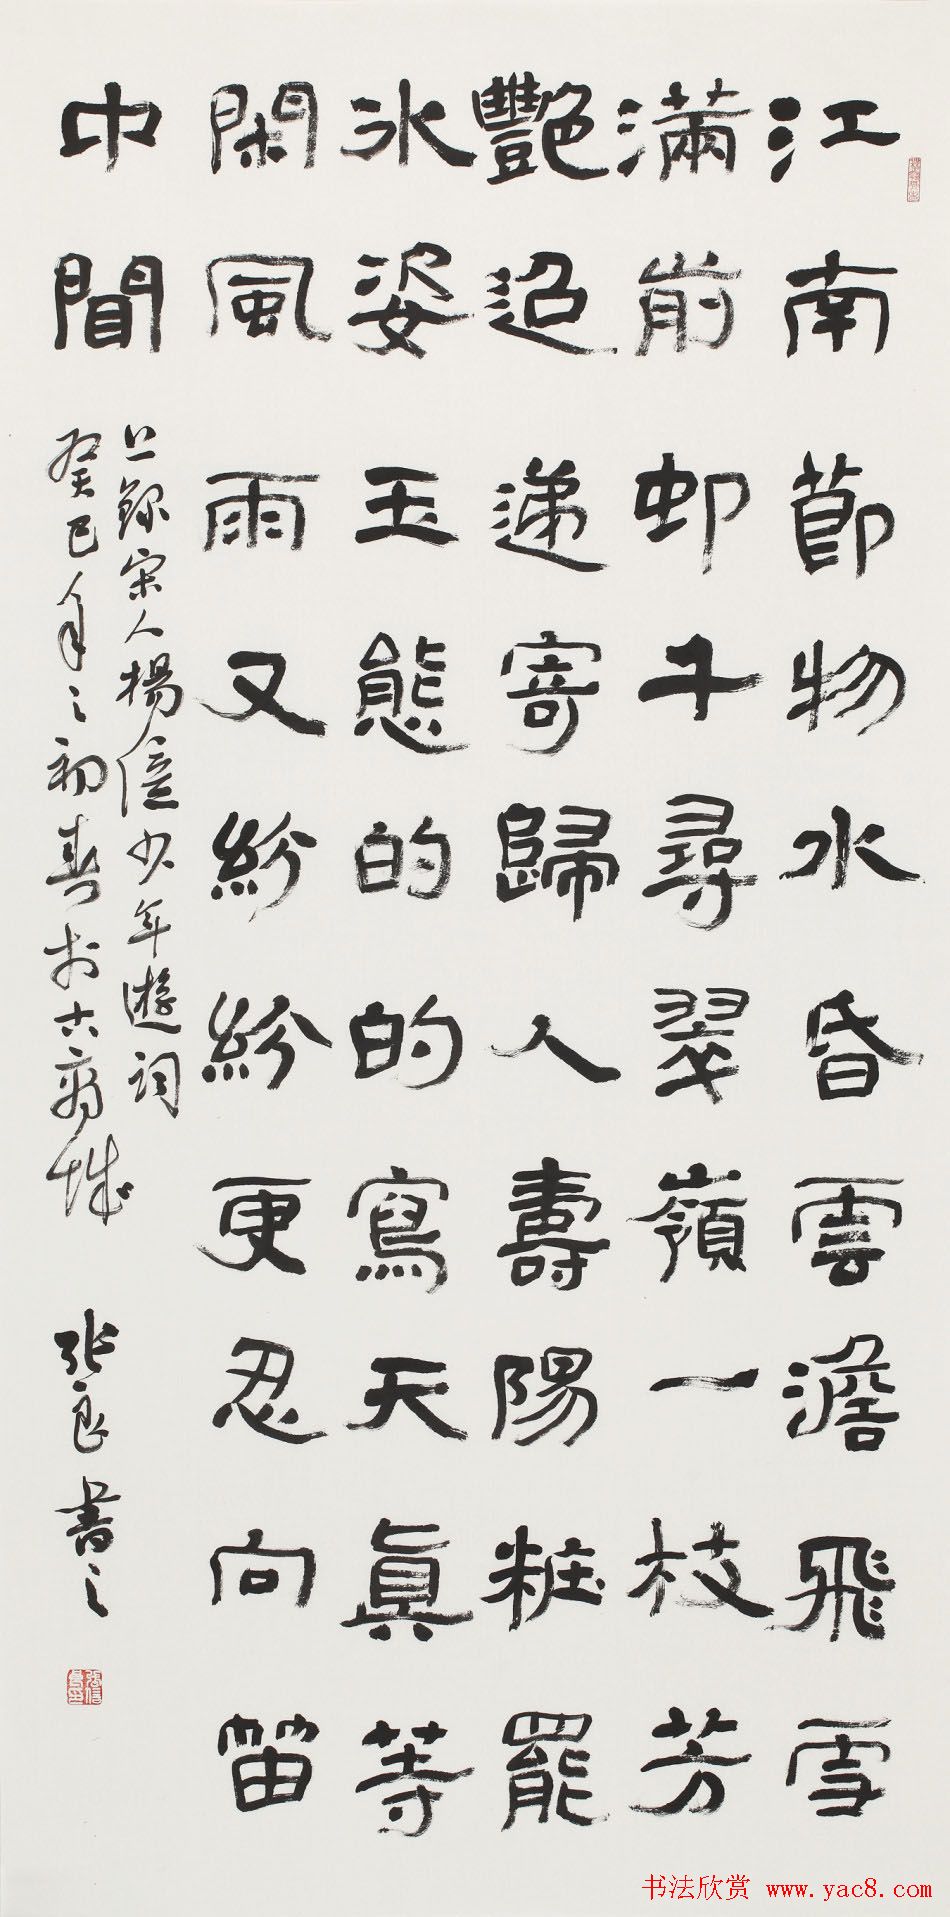 江南節物水昏雲澹飛雪
滿前卻千尋翠嶺一枝芳
艷迢遞寄歸人壽陽粧罷
冰姿玉態的的寫天真等
閑風雨又紛紛更忍向笛
中聞
上錄宋人楊億少年遊詞
癸巳年之初春於古城 張良書之
书法欣赏 www.yac8.com